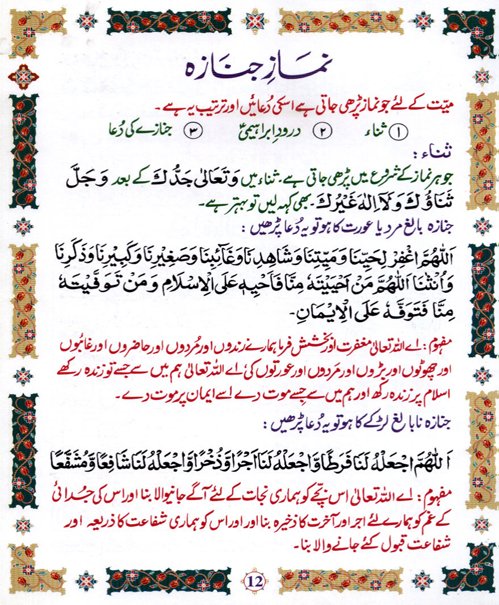 نمازِ جنازہ
میّت کے لئے جو نماز پڑھی جاتی ہے اسکی دُعائیں اور ترتیب یہ ہے۔
① ثناء ② درودِ ابراہیمیؑ ③ جنازے کی دُعا
ثناء :
جو ہر نماز کے شروع میں پڑھی جاتی ہے۔ ثناء میں وَتَعَالٰی جَدُّكَ کے بعد وَ جَلَّ
ثَنَاؤُكَ وَلَآ اِلٰهَ غَيْرُكَ۔ بھی کہہ لیں تو بہتر ہے۔
جنازہ بالغ مرد یا عورت کا ہو تو یہ دُعا پڑھیں:
اَللّٰهُمَّ اغْفِرْ لِحَيِّنَا وَمَيِّتِنَا وَشَاهِدِنَا وَغَآئِبِنَا وَصَغِيْرِنَا وَكَبِيْرِنَا وَذَكَرِنَا
وَاُنْثٰنَا اَللّٰهُمَّ مَنْ اَحْيَيْتَهٗ مِنَّا فَاَحْيِهٖ عَلَى الْاِسْلَامِ وَ مَنْ تَوَفَّيْتَهٗ
مِنَّا فَتَوَفَّهٗ عَلَى الْاِيْمَانِ۔
مفہوم: اے اللہ تعالیٰ مغفرت اور بخشش فرما ہمارے زندوں اور مُردوں اور حاضروں اور غائبوں
اور چھوٹوں اور بڑوں اور مَردوں اور عورتوں کی اے اللہ تعالیٰ ہم میں سے جسے تو زندہ رکھے
اسلام پر زندہ رکھ اور ہم میں سے جسے موت دے اسے ایمان پر موت دے۔
جنازہ نابالغ لڑکے کا ہو تو یہ دُعا پڑھیں:
اَللّٰهُمَّ اجْعَلْهُ لَنَا فَرَطًا وَّاجْعَلْهُ لَنَا اَجْرًا وَّذُخْرًا وَّاجْعَلْهُ لَنَا شَافِعًا وَّمُشَفَّعًا
مفہوم: اے اللہ تعالیٰ اس بچّے کو ہماری نجات کے لئے آگے جانیوالا بنا اور اس کی جدائی
کے غم کو ہمارے لئے اجر اور آخرت کا ذخیرہ بنا اور اور اس کو ہماری شفاعت کا ذریعہ اور
شفاعت قبول کئے جانے والا بنا۔
12